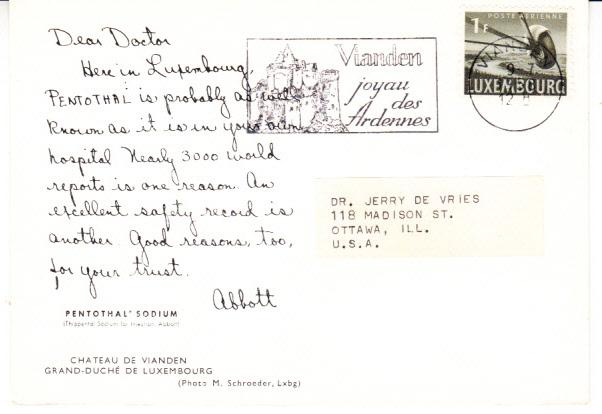 Dear Doctor
Here in Luxembourg,
PENTOTHAL is probably as well
known as it is in your own
hospital Nearly 3000 world
reports is one reason. An
excellent safety record is
another. Good reasons, too,
for your trust.
Abbott
PENTOTHAL® SODIUM
(Thiopental Sodium for Injection, Abbott)
CHATEAU DE VIANDEN
GRAND-DUCHÉ DE LUXEMBOURG
(Photo M. Schroeder, Lxbg)
Vianden
joyau
des
Ardennes
POSTE AÉRIENNE
1F
LUXEMBOURG
VIANDEN
9
12 8
DR. JERRY DE VRIES
118 MADISON ST.
OTTAWA, ILL.
U.S.A.